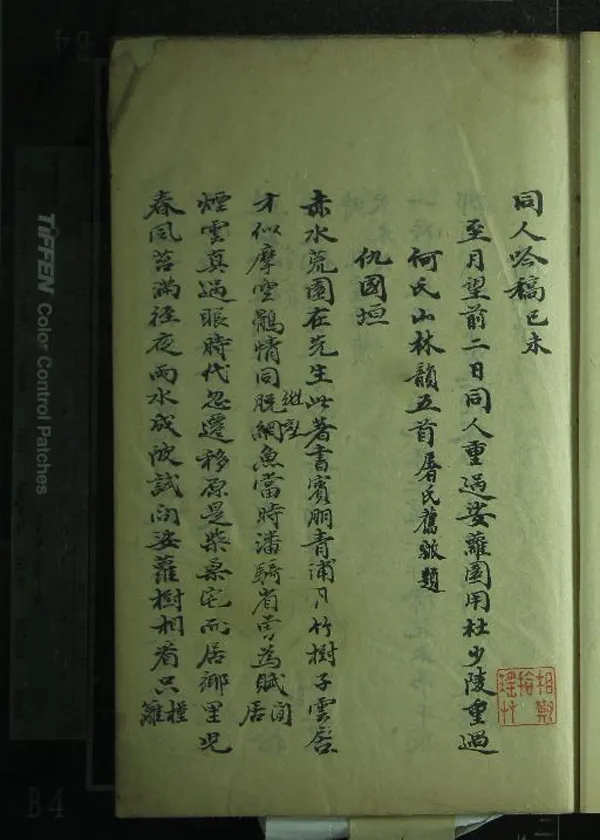 同人吟稿己未
至月望前二日同人重過娑蘿園用杜少陵重過
何氏山林韻五首屠氏舊題
仇國垣
赤水荒園在先生此著書賓朋青浦月竹樹子雲廬
才似摩空鶻情同脫網魚當時潘騎省嘗為賦閒居
煙雲真過眼時代忽遷移原是柴桑宅而居鄉里兒
春風苔滿徑夜雨水成陂試問娑蘿樹相看只槿籬
TIFFEN Color Control Patches
B4